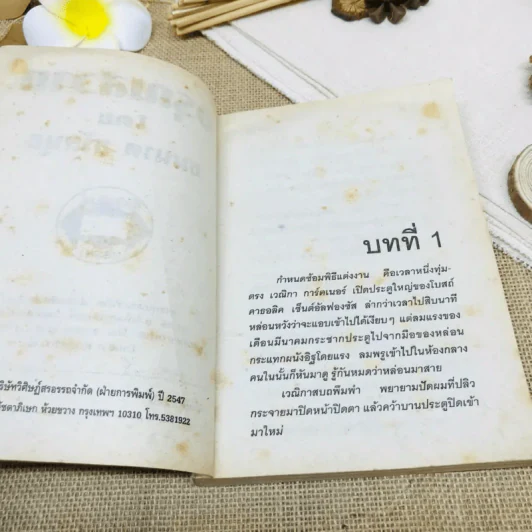 บริษัทวิศิษฏ์สรอรรถจำกัด (ฝ่ายการพิมพ์) ปี 2547
รัชดาภิเษก ห้วยขวาง กรุงเทพฯ 10310 โทร.5381922
บทที่ 1
กำหนดซ้อมพิธีแต่งงาน คือเวลาหนึ่งทุ่ม-
ตรง เวณิกา การ์ดเนอร์ เปิดประตูใหญ่ของโบสถ์
คาธอลิค เซ็นต์อัลฟองซัส ล่ากว่าเวลาไปสิบนาที
หล่อนหวังว่าจะแอบเข้าไปได้เงียบๆ แต่ลมแรงของ
เดือนมีนาคมกระชากประตูไปจากมือของหล่อน
กระแทกผนังอิฐโดยแรง ลมพรูเข้าไปในห้องกลาง
คนในนั้นก็หันมาดู รู้กันหมดว่าหล่อนมาสาย
เวณิกาสบถพึมพำ พยายามปัดผมที่ปลิว
กระจายมาปิดหน้าปิดตา แล้วคว้าบานประตูปิดเข้า
มาใหม่